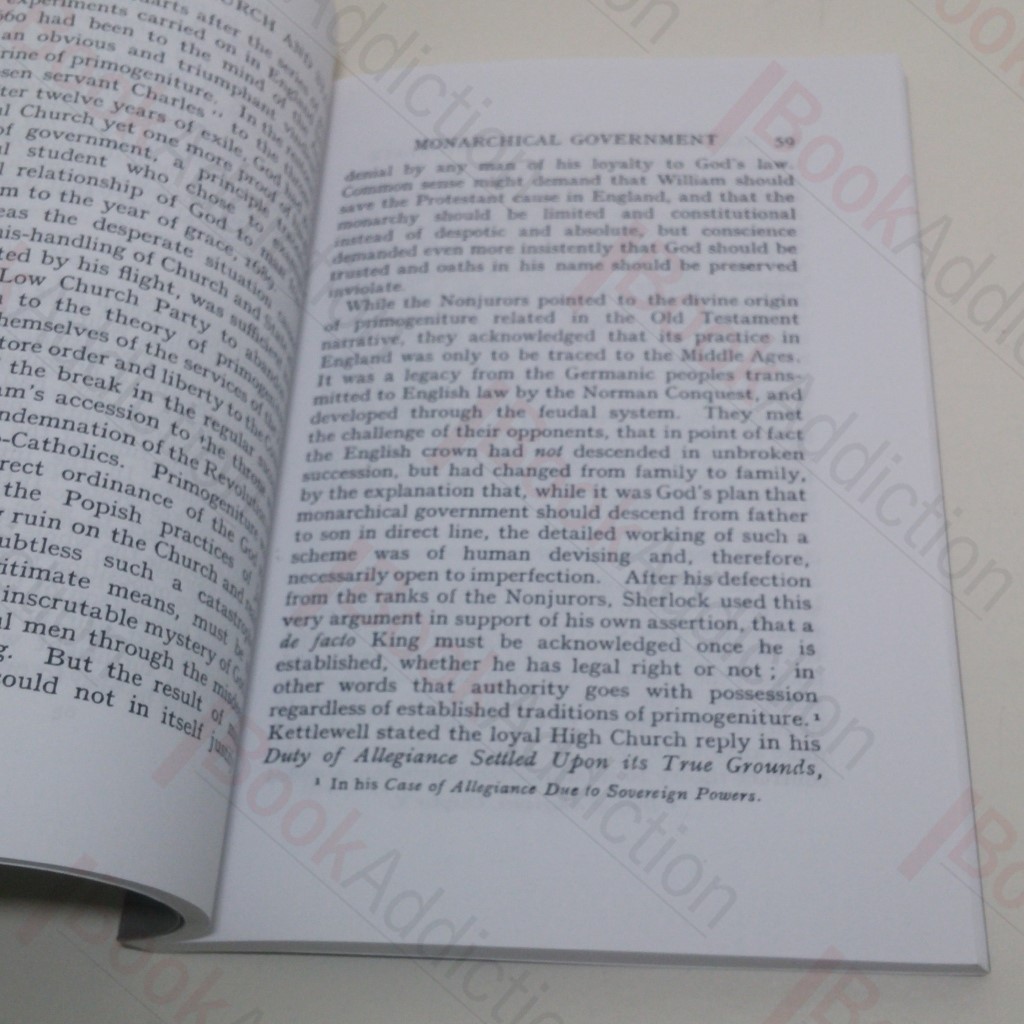 CH AND
arts after the
experiments carried on in
660 had been to the mind of the
an obvious and triumphant
rine of primogeniture. In the
sen servant Charles" to the
ter twelve years of exile, God
al Church yet one more proof of
of government, a principle
l student who chose to
l relationship of God to
m to the year of grace, 1689
eas the desperate situation
his-handling of Church and State
ted by his flight, was
Low Church Party to
to the theory of
hemselves of the services of the
tore order and liberty to the
the break in the regular
m's accession to the throne
ndemnation of the Revolution
-Catholics. Primogeniture
rect ordinance of the God
the Popish practices of
ruin on the Church and
ubtless such a
itimate means, must be
inscrutable mystery of God
al men through the
g. But the result of
ould not in itself
MONARCHICAL GOVERNMENT 59
denial by any man of his loyalty to God's law.
Common sense might demand that William should
save the Protestant cause in England, and that the
monarchy should be limited and constitutional
instead of despotic and absolute, but conscience
demanded even more insistently that God should be
trusted and oaths in his name should be preserved
inviolate.
While the Nonjurors pointed to the divine origin
of primogeniture related in the Old Testament
narrative, they acknowledged that its practice in
England was only to be traced to the Middle Ages.
It was a legacy from the Germanic peoples trans-
mitted to English law by the Norman Conquest, and
developed through the feudal system. They met
the challenge of their opponents, that in point of fact
the English crown had not descended in unbroken
succession, but had changed from family to family,
by the explanation that, while it was God's plan that
monarchical government should descend from father
to son in direct line, the detailed working of such a
scheme was of human devising and, therefore,
necessarily open to imperfection. After his defection
from the ranks of the Nonjurors, Sherlock used this
very argument in support of his own assertion, that a
de facto King must be acknowledged once he is
established, whether he has legal right or not; in
other words that authority goes with possession
regardless of established traditions of primogeniture.¹
Kettlewell stated the loyal High Church reply in his
Duty of Allegiance Settled Upon its True Grounds,
¹ In his Case of Allegiance Due to Sovereign Powers.
BookAddiction